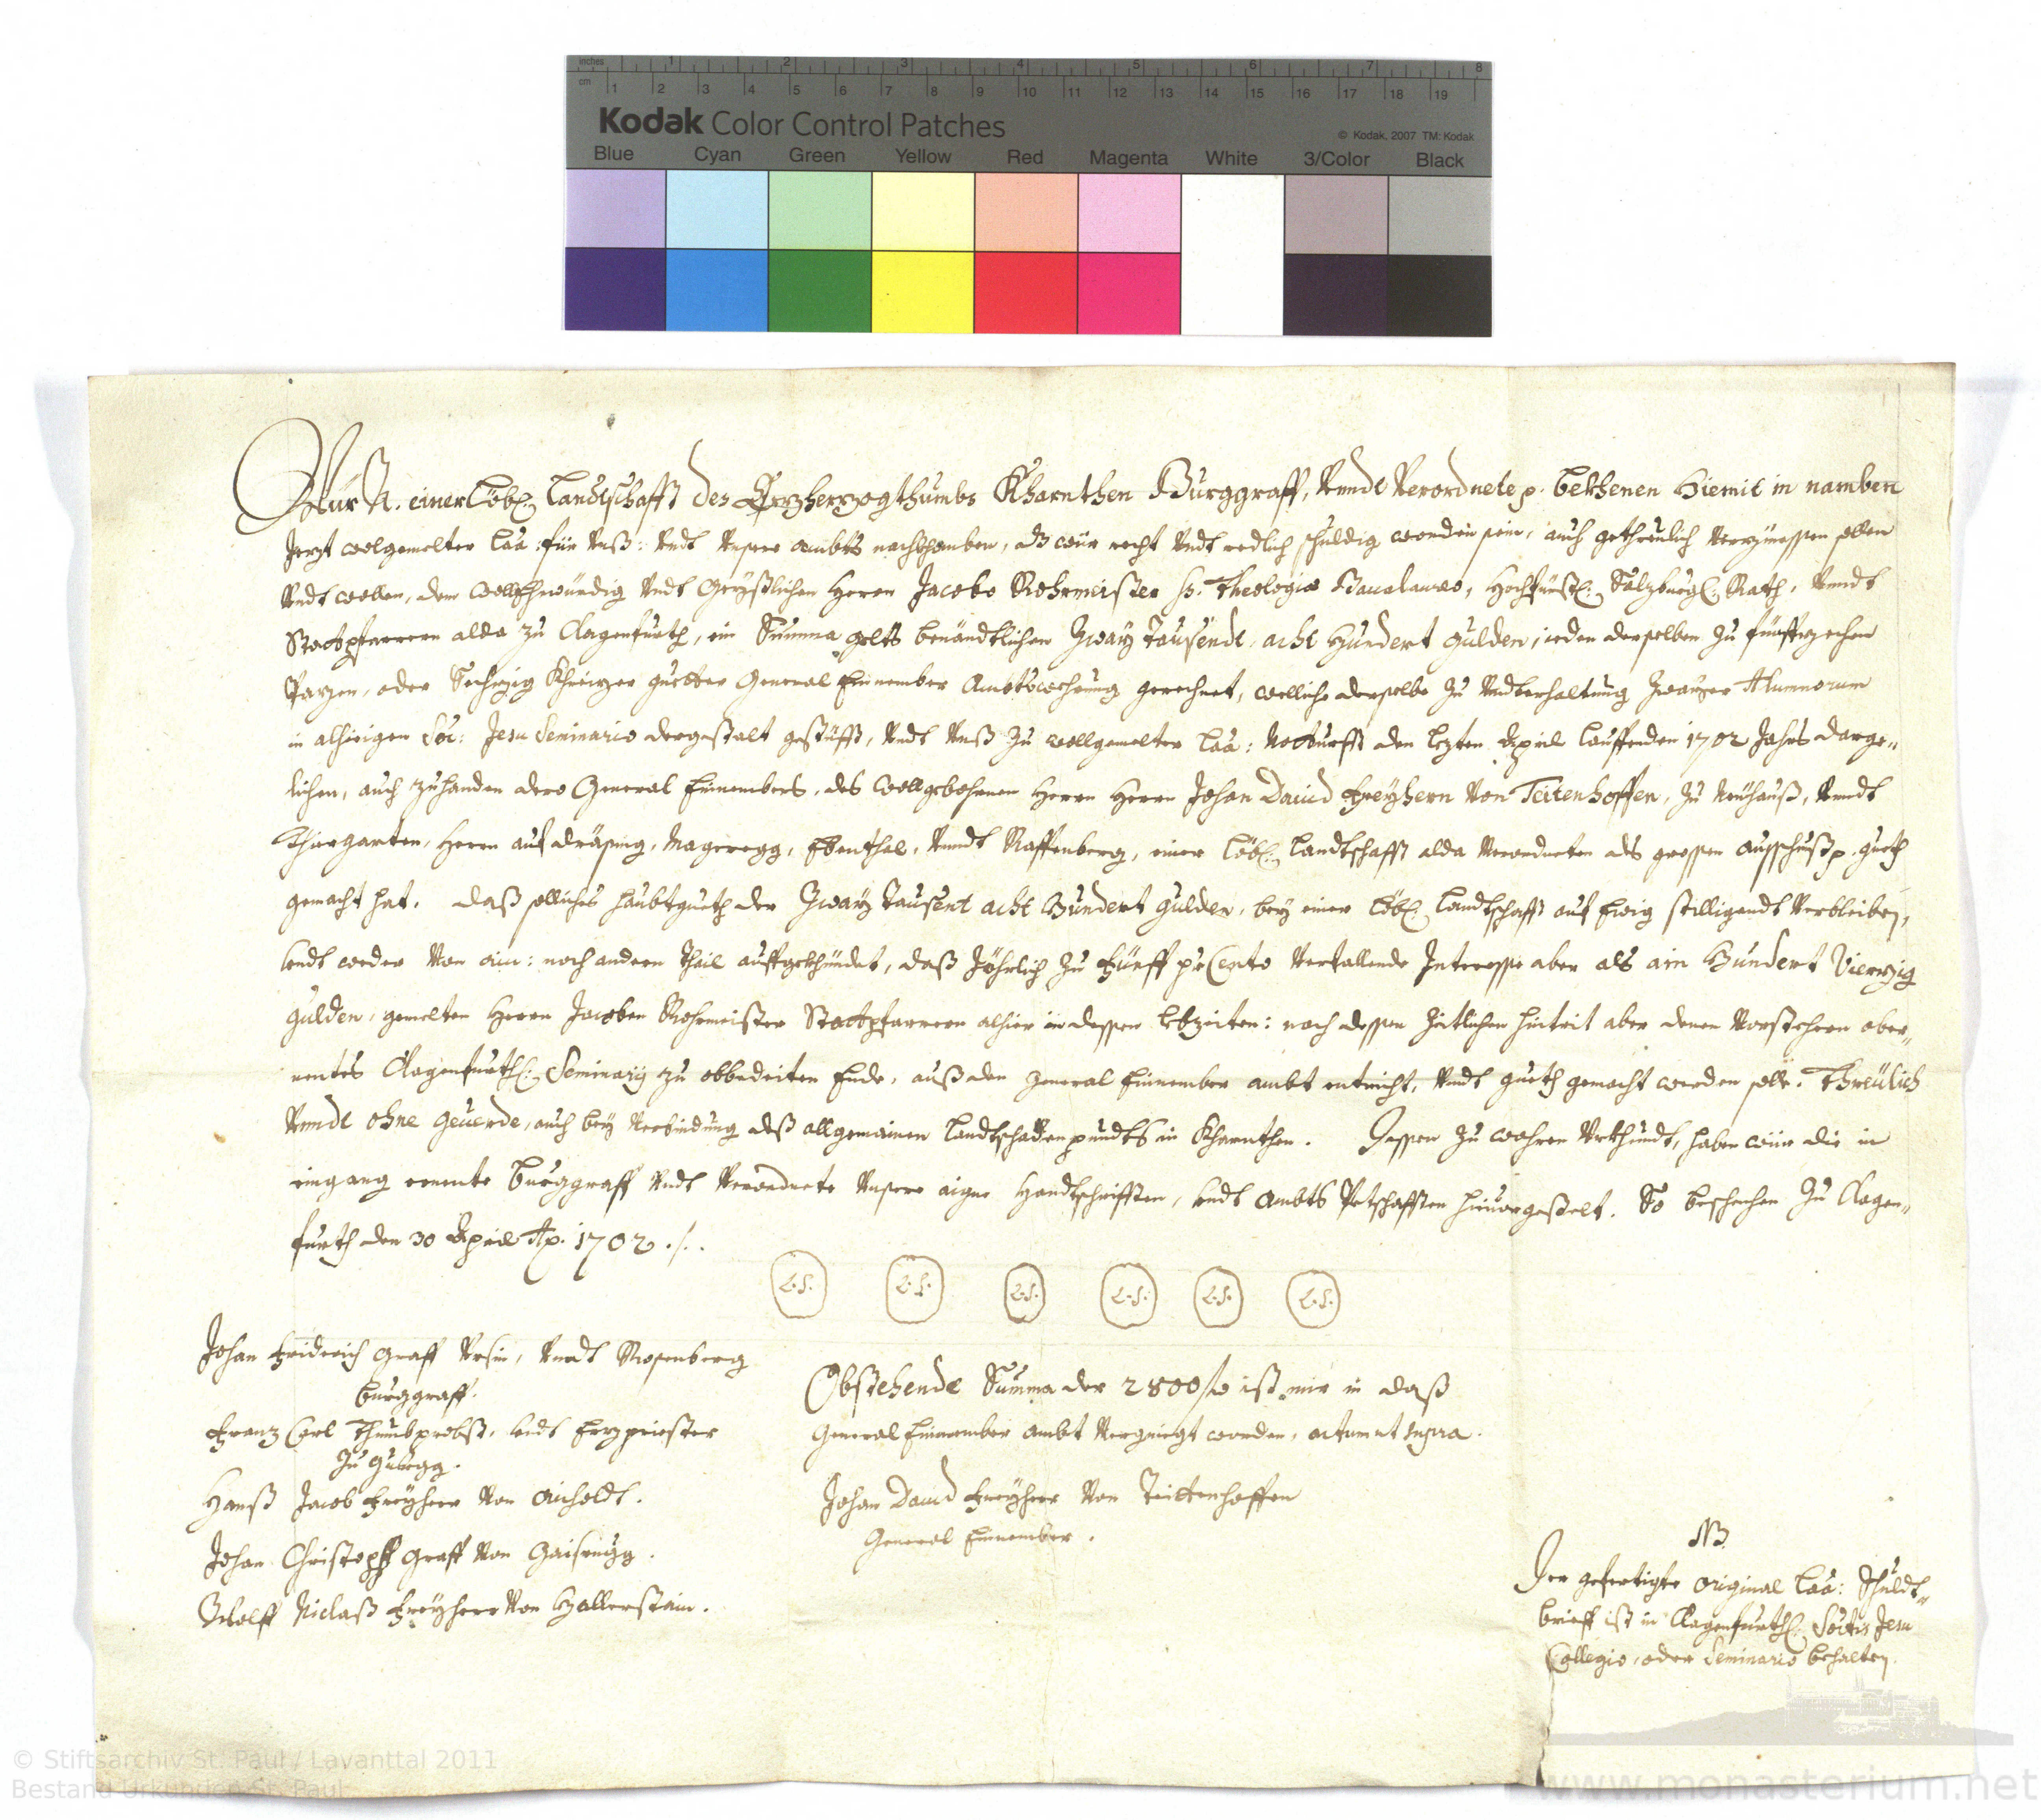 inches 1 2 3 4 5 6 7 8
cm 1 2 3 4 5 6 7 8 9 10 11 12 13 14 15 16 17 18 19
Kodak Color Control Patches © Kodak, 2007 TM: Kodak
Blue Cyan Green Yellow Red Magenta White 3/Color Black
Wür N. einer Löb: Landtschafft des Erzherzogthumbs Kharnthen Burggraff, Vnndt Verordnete p. bekhenen Hiemit in namben
Jerzt wolgemelter Laa: für Vnß: Vndt Vnsere ambts nachkhomben, dz wür recht Vndt redlich schuldig worden sein, auch gethreulich Verzünssen sollen
Vndt wollen, dem WollEhrwürdig Vndt Geystlichen Herrn Jacobo Rohrmeister Ss. Theologiæ Baccalaureo, Hochfürstl: Salzburgl: Rath, Vnndt
Stattpfarrern alda zu Clagenfurth, ein Summa gelts benändtlichen Zway Tausendt acht Hundert Gulden, ieden derselben zu fünffzechen
Pazen, oder Sechzig Kheizer guetter General Einnember Ambtswehrung gerechnet, welliche derselbe zu Vndterhaltung Zwayer Alumnorum
in alhieigen Soc: Jesu Seminario dergestalt gestüfft, Vndt Vnß zu wollgemelter Laa: Notturfft den lezten April lauffenden 1702 Jahrs darge„
lichen, auch zuhanden dero General Einnembers, des Wollgebohrnen Herrn Herrn Johan Dauid Freyherrn Von Teitenhoffen, zu Neuhauß, Vnndt
Thiergarten, Herrn auf Mageregg, Ebenthal, Vnndt Raffenberg, einer Löb: Landtschafft alda Verordneten des grossen ausschuß p. gueth
gemacht hat. Daß solliches haubtgueth der Zway Tausent acht Hundert Gulden, bey einer Löb: Landtschafft auf Ewig stilligendt Verbleiben,
Vndt weder Von ain: noch andern Thail auffgekhündet, daß Jährlich zu Fünff pr Cento Verfallende Interesse aber als ain Hundert Vierzig
Gulden, gemelten Herrn Jacoben Rohrmeister Stattpfarrern alhier in dessen lebzeiten: nach dessen Zeitlichen hintrit aber denen Vorstehern ober„
nentes Clagenfurth: Seminarij zu obbedeiten Ende, auß den General Einnember ambt entricht, Vndt gueth gemacht werden solle. Threülich
Vnndt ohne Geuerde, auch bey Verbindung deß allgemainen Landtschadenpundts in Kharnthen. Dessen zu wahren Vrkhundt, haben wür die in
eingang ernente Burggraff Vndt Verordnete Vnsere aigne Handtschrifften, Vndt Ambts Petschafften hieuorgestelt. So beschechen zu Clagen„
furth den 30 April Ao. 1702 ./.
L.S. L.S. L.S. L.S. L.S. L.S.
Johan Fridrich Graff Vrsin, Vnndt Rosenberg
Burggraff.
Franz Carl Thumbprobst, Vndt Erzpriester
zu Gurgg.
Hanß Jacob Freyherr Von Aicholdt.
Johan Christoph Graff Von Gaisrugg.
Wolff Niclaß Freyherr Von Hallerstain.
Obstehende Summa der 2800 fl ist mir in daß
General Einnember ambt Vergniegt worden, actum ut supra.
Johan Dauid Freyherr Von Teittenhoffen
General Einnember.
NB.
Der gefertigte original Laa: Schuldt„
brieff ist in Clagenfurth: Soctis Jesu
Collegio, oder Seminario behalten.
© Stiftsarchiv St. Paul / Lavanttal 2011
Bestand Urkunden St. Paul
www.monasterium.net